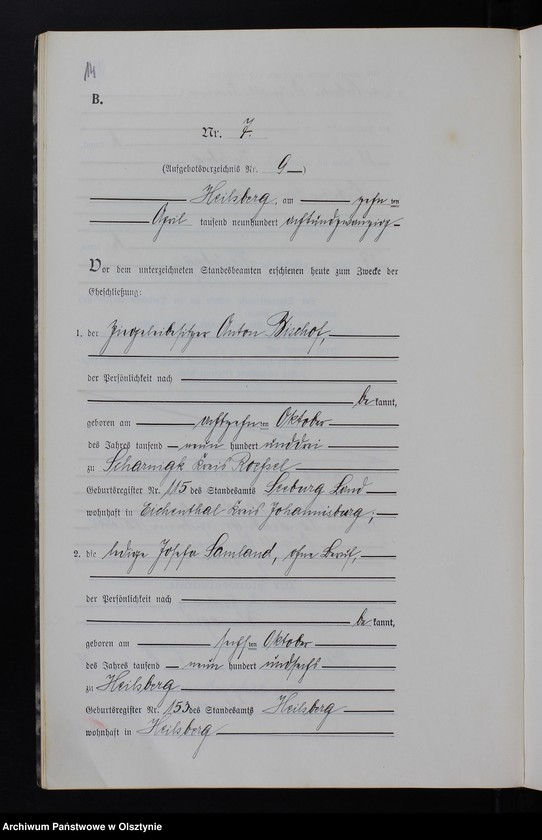 14
B.
Nr. 7.
(Aufgebotsverzeichnis Nr. 9)
Heilsberg, am zehnten
April tausend neunhundert achtundzwanzig
Vor dem unterzeichneten Standesbeamten erschienen heute zum Zwecke der
Eheschließung:
1. der Ziegeleibesitzer Anton Bischof,
der Persönlichkeit nach
bekannt,
geboren am achtzehnten Oktober
des Jahres tausend neun hundert unddrei
zu Scharnigk Kreis Roessel
Geburtsregister Nr. 115 des Standesamts Seeburg Land
wohnhaft in Eichenthal Kreis Johannisburg;
2. die ledige Josefa Samland, ohne Beruf,
der Persönlichkeit nach
bekannt,
geboren am sechsten Oktober
des Jahres tausend neun hundert undsechs
zu Heilsberg
Geburtsregister Nr. 153 des Standesamts Heilsberg
wohnhaft in Heilsberg
Archiwum Państwowe w Olsztynie